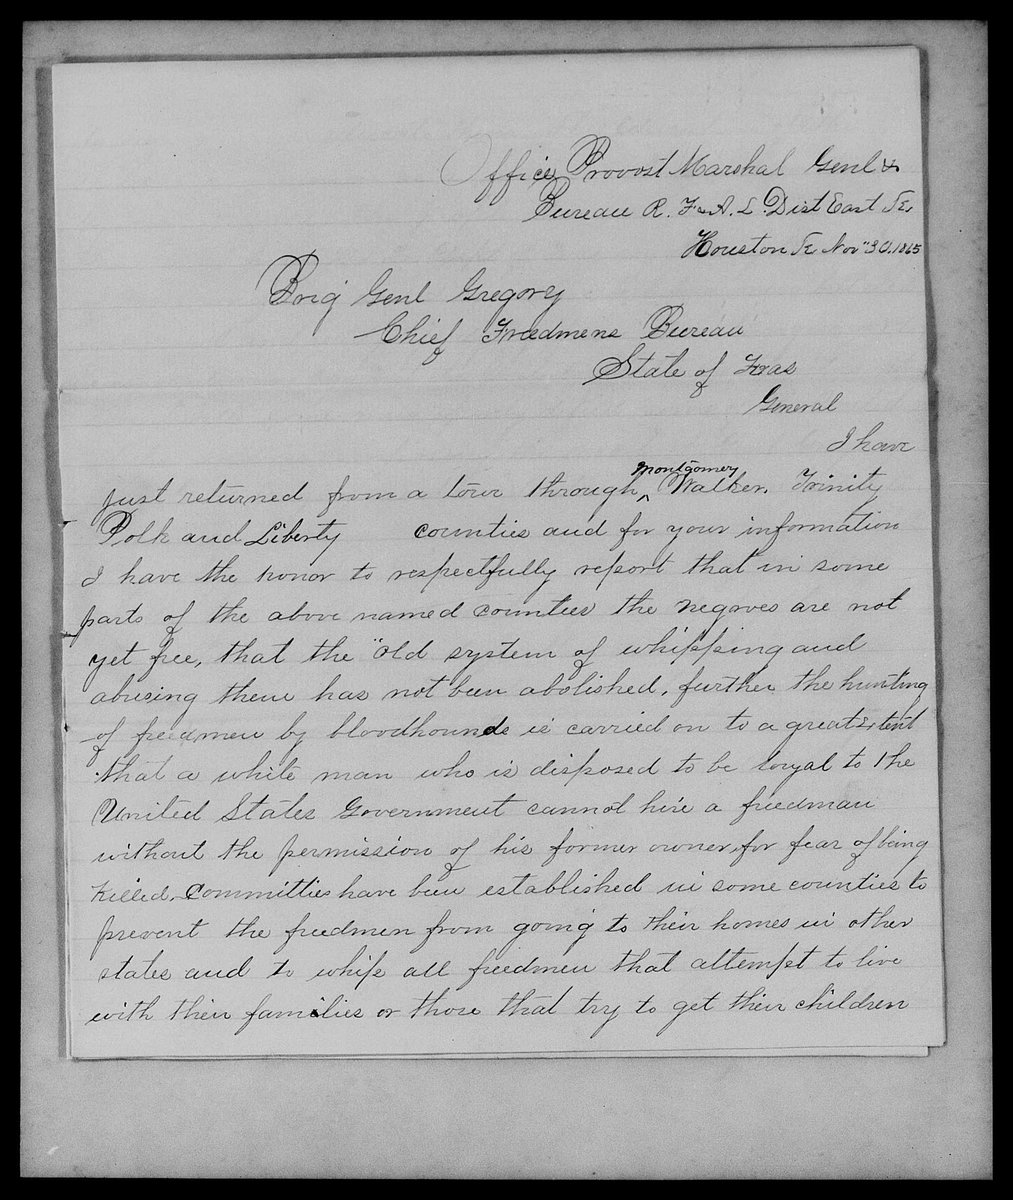 Office Provost Marshal Genl &
Bureau R. F & A. L. Dist East Tx.
Houston Tx Nov "30. 1865
Brig Genl Gregory
Chief Freedmens Bureau
State of Texas
General
I have
Montgomery
just returned from a tour through ‸ Walker, Trinity
Polk and Liberty counties and for your information
I have the honor to respectfully report that in some
parts of the above named counties the negroes are not
yet free, that the "old system of whipping and
abusing them has not been abolished, further the hunting
of freedmen by bloodhounds is carried on to a great extent
that a white man who is disposed to be loyal to the
United States Government cannot hire a freedman
without the permission of his former owner, for fear of being
killed. Committies have been established in some counties to
prevent the freedmen from going to their homes in other
states and to whip all freedmen that attempt to live
with their families or those that try to get their children